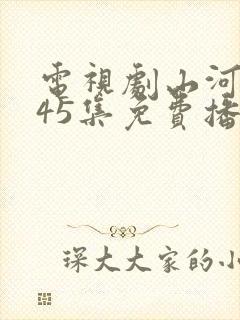 電視劇山河
45集免費播
琛大大家的小